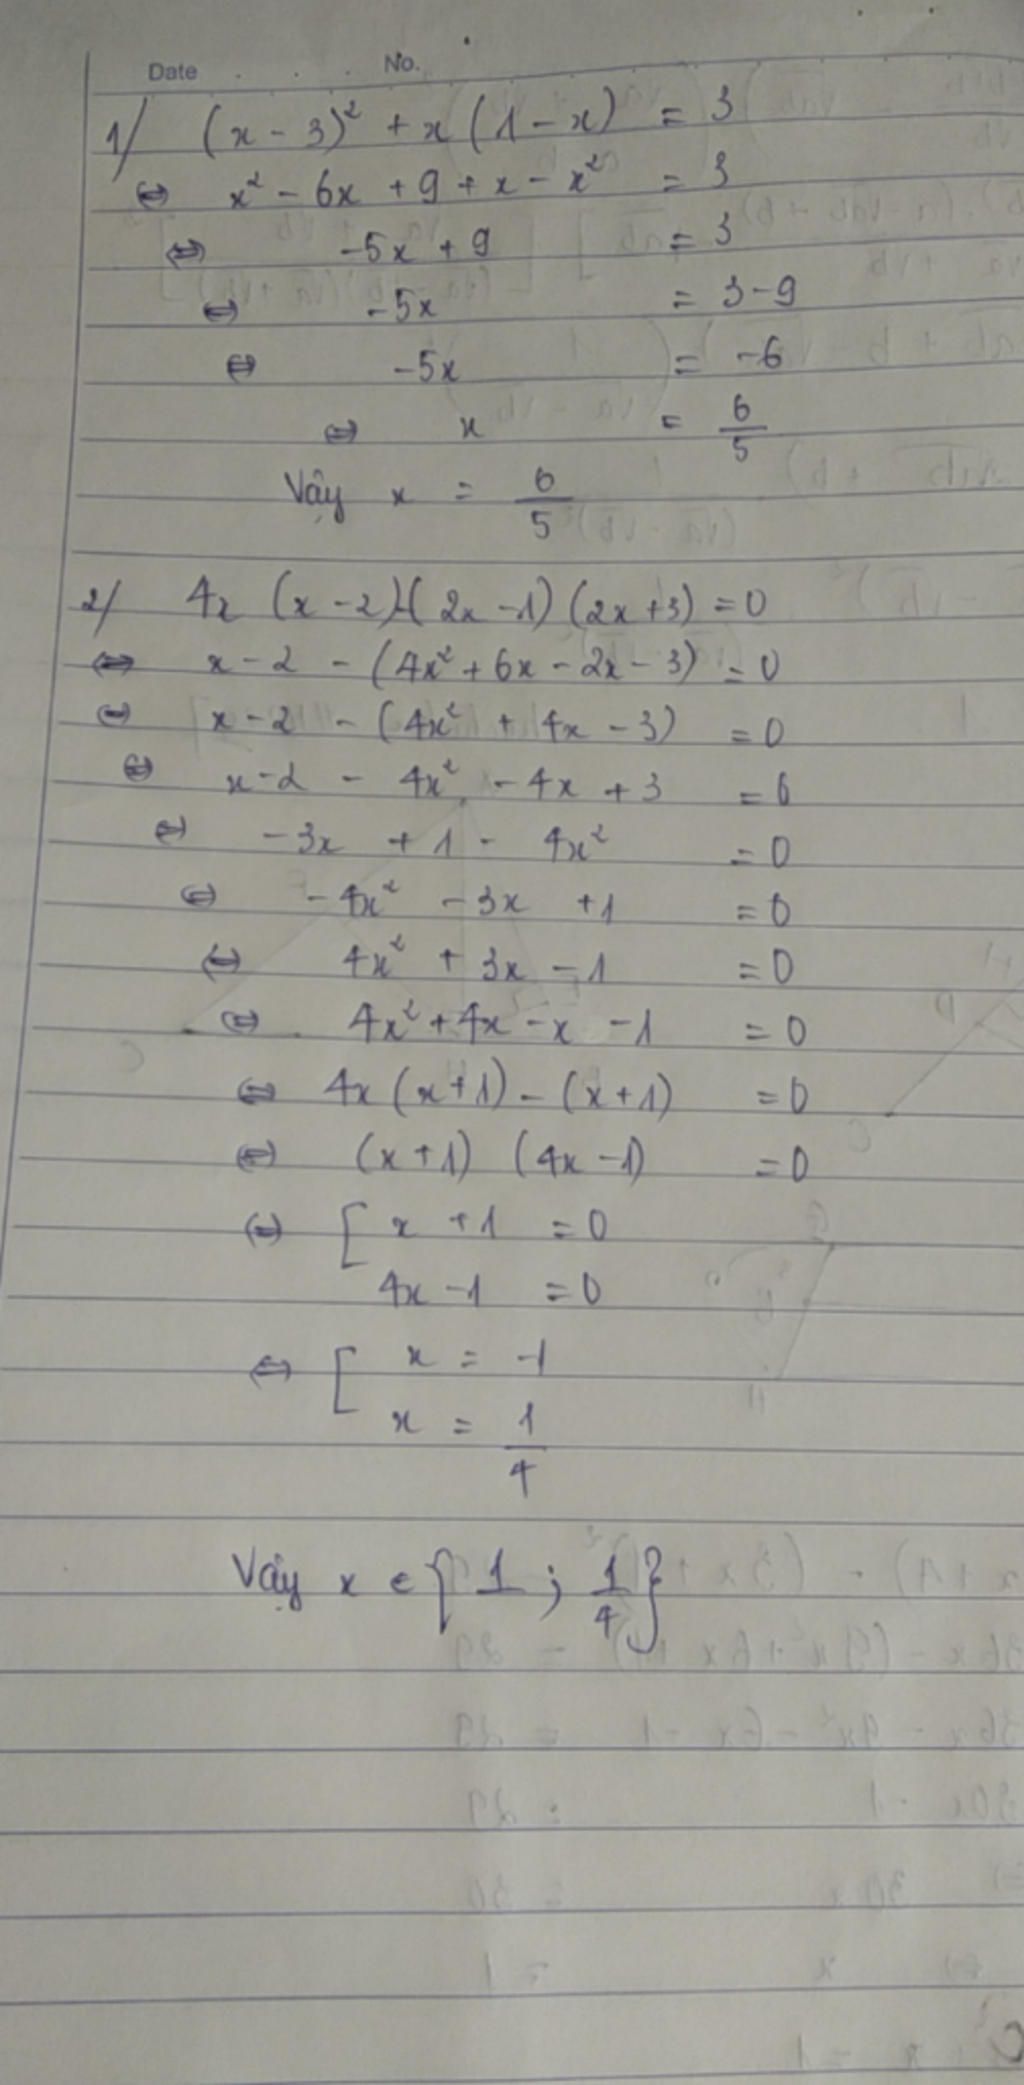 Date . . . No.
1/ (x - 3)² + x (1 - x) = 3
⇔ x² - 6x + 9 + x - x² = 3
⇔ -5x + 9 = 3
⇔ -5x = 3 - 9
⇔ -5x = -6
⇔ x = 6/5
Vậy x = 6/5
2/ 4x (x - 2) - (2x - 1) (2x + 3) = 0
⇔ x - 2 - (4x² + 6x - 2x - 3) = 0
⇔ x - 2 - (4x² + 4x - 3) = 0
⇔ x - 2 - 4x² - 4x + 3 = 0
⇔ -3x + 1 - 4x² = 0
⇔ -4x² - 3x + 1 = 0
⇔ 4x² + 3x - 1 = 0
⇔ 4x² + 4x - x - 1 = 0
⇔ 4x (x + 1) - (x + 1) = 0
⇔ (x + 1) (4x - 1) = 0
⇔ [ x + 1 = 0
4x - 1 = 0
⇔ [ x = -1
x = 1/4
Vậy x ∈ { 1 ; 1/4 }